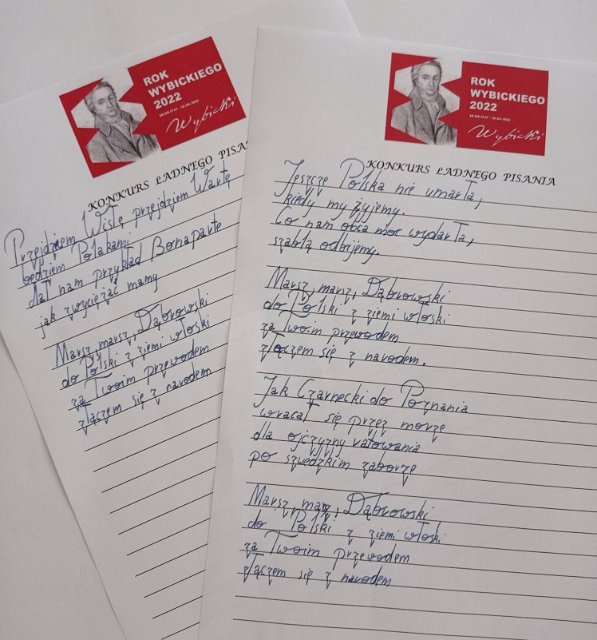 ROK
WYBICKIEGO
2022
Wybicki
KONKURS ŁADNEGO PISA
Przejdziem Wisłę przejdziem Wartę
będziem Polakami
dał nam przykład Bonaparte
jak zwyciężać mamy
Marsz, marsz, Dąbrowski
do Polski z ziemi włoski
za Twoim przewodem
złączem się z narodem
ROK
WYBICKIEGO
2022
Wybicki
KONKURS ŁADNEGO PISANIA
Jeszcze Polska nie umarła,
kiedy my żyjemy.
Co nam obca moc wydarła,
szablą odbijemy.
Marsz, marsz, Dąbrowski
do Polski z ziemi włoski
za Twoim przewodem
złączem się z narodem.
Jak Czarnecki do Poznania
wracał się przez morze
dla ojczyzny ratowania
po szwedzkim zaborze
Marsz, marsz, Dąbrowski
do Polski z ziemi włoski
za Twoim przewodem
złączem się z narodem